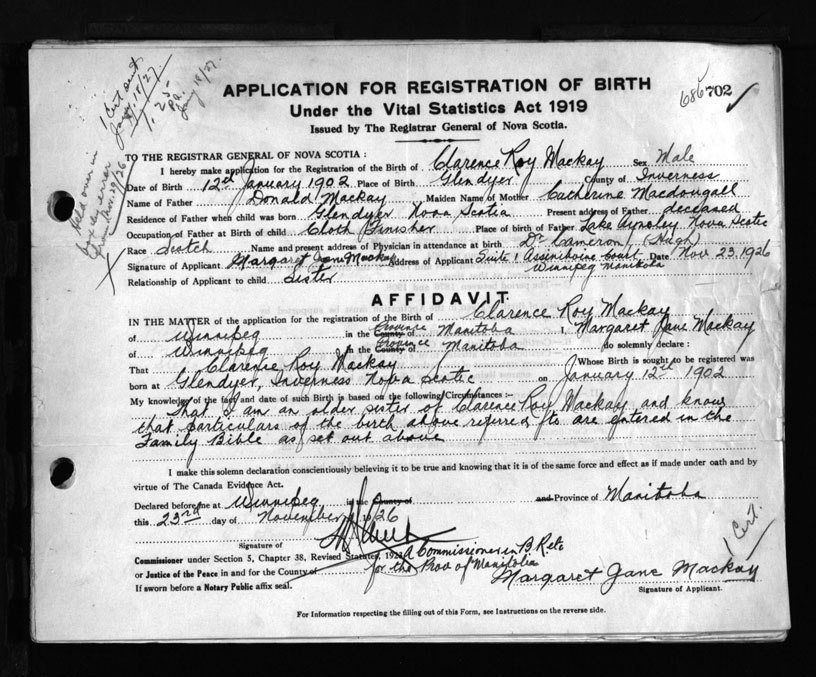 1 Cert sent
Jany. 18/27.
1.25
pd.
Jany 18/27.
Held over in
from Nov. 29/26
APPLICATION FOR REGISTRATION OF BIRTH
Under the Vital Statistics Act 1919
Issued by The Registrar General of Nova Scotia.
686 702
TO THE REGISTRAR GENERAL OF NOVA SCOTIA :
I hereby make application for the Registration of the Birth of Clarence Roy Mackay Sex Male
Date of Birth 12th January 1902 Place of Birth Glendyer County of Inverness
Name of Father Donald Mackay Maiden Name of Mother Catherine Macdougall
Residence of Father when child was born Glendyer Nova Scotia Present address of Father deceased
Occupation of Father at Birth of child Cloth Finisher Place of birth of Father Lake Ainsley Nova Scotia
Race Scotch Name and present address of Physician in attendance at birth Dr Cameron, (Hugh)
Signature of Applicant Margaret Jane Mackay Address of Applicant Suite 1 Assiniboine Court Date Nov 23, 1926
Winnipeg Manitoba
Relationship of Applicant to child Sister
AFFIDAVIT
IN THE MATTER of the application for the registration of the Birth of Clarence Roy Mackay
of Winnipeg in the County of Province Manitoba I, Margaret Jane Mackay
of Winnipeg in the County of Province Manitoba do solemnly declare :
That Clarence Roy Mackay Whose Birth is sought to be registered was
born at Glendyer, Inverness Nova Scotia on January 12th 1902
My knowledge of the fact and date of such Birth is based on the following Circumstances :-
That I am an older sister of Clarence Roy Mackay and know
that particulars of the birth above referred to are entered in the
Family Bible as set out above
I make this solemn declaration conscientiously believing it to be true and knowing that it is of the same force and effect as if made under oath and by
virtue of The Canada Evidence Act.
Declared before me at Winnipeg in the County of and Province of Manitoba
this 23rd day of November 1926
Signature of
Commissioner under Section 5, Chapter 38, Revised Statutes, 1923 A Commissioner in B. R etc
or Justice of the Peace in and for the County of for the Prov of Manitoba
If sworn before a Notary Public affix seal.
Margaret Jane Mackay
Signature of Applicant.
1 Cert.
For Information respecting the filling out of this Form, see Instructions on the reverse side.